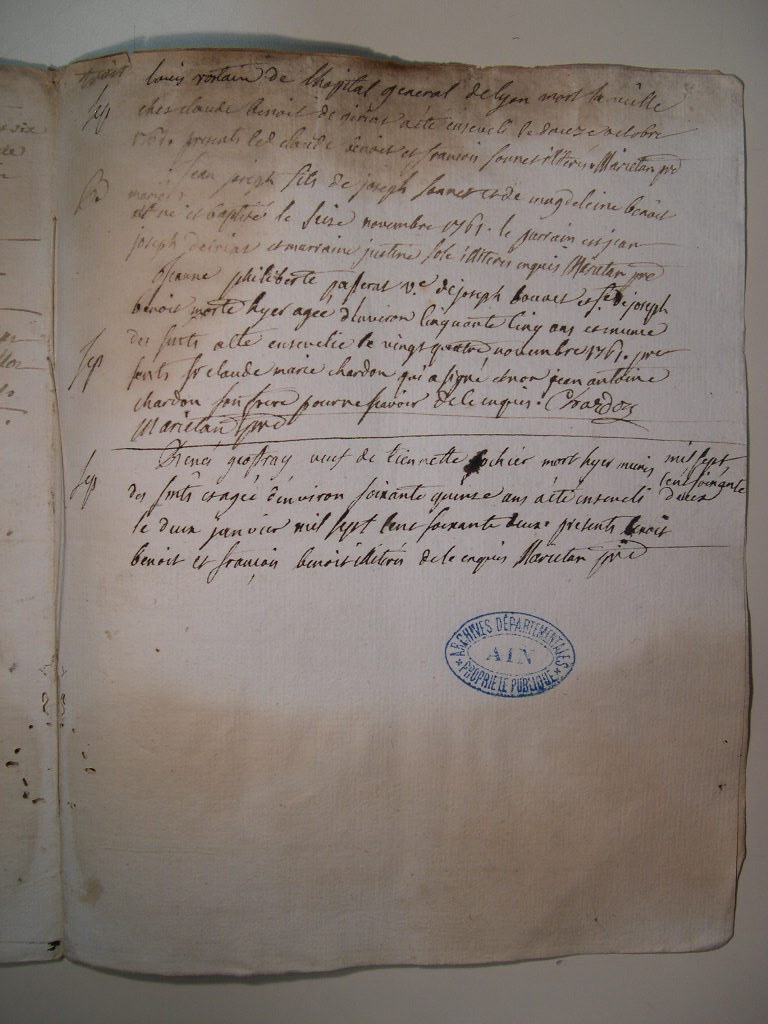 Louis vortain de lhopital general de lyon mort la veille
Sep chez claude benoit de virias a été enseveli le douze octobre
1761. presents led claude benoit et francois sonnet illiterés. Marietan pre
B jean joseph fils de joseph sonnet et de magdeleine benoit
mariés
est né et baptisé le seize novembre 1761. le parrain est jean
joseph et marraine justine illiteres enquis Marietan pre
jeanne philiberte passerat ve. de joseph bouvet et fe. de joseph
benoit morte hyer agee d'environ cinquante cinq ans et munie
Sep des smts a été ensevelie le vingt quatre novembre 1761. pre
sents sr claude marie chardon qui a signé et non jean antoine
chardon son frere pour ne scavoir de ce enquis. Chardon
Marietan pre
mil sept
cent soixante
deux
Sep René geoffray veuf de tiennette pochier mort hyer munis
des smts et agé d'environ soixante quinze ans a été enseveli
le deux janvier mil sept cent soixante deux. presents benoit
benoit et francois benoit illiterés de ce enquis Marietan pre
ARCHIVES DÉPARTEMENTALES
AIN
PROPRIÉTÉ PUBLIQUE